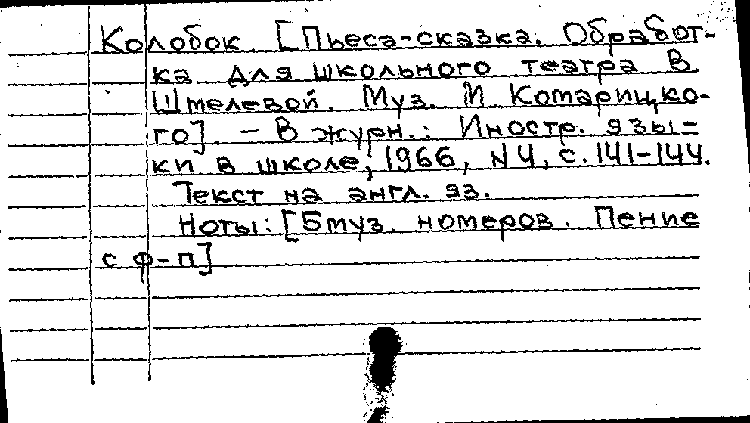 Колобок. [Пьеса-сказка. Обработ-
ка для школьного театра В.
Штелевой. Муз. И. Комарицко-
го]. – В журн.: Иностр. язы-
ки в школе, 1966, N4, с. 141-144.
Текст на англ. яз.
Ноты: [5 муз. номеров. Пение
с ф-п]